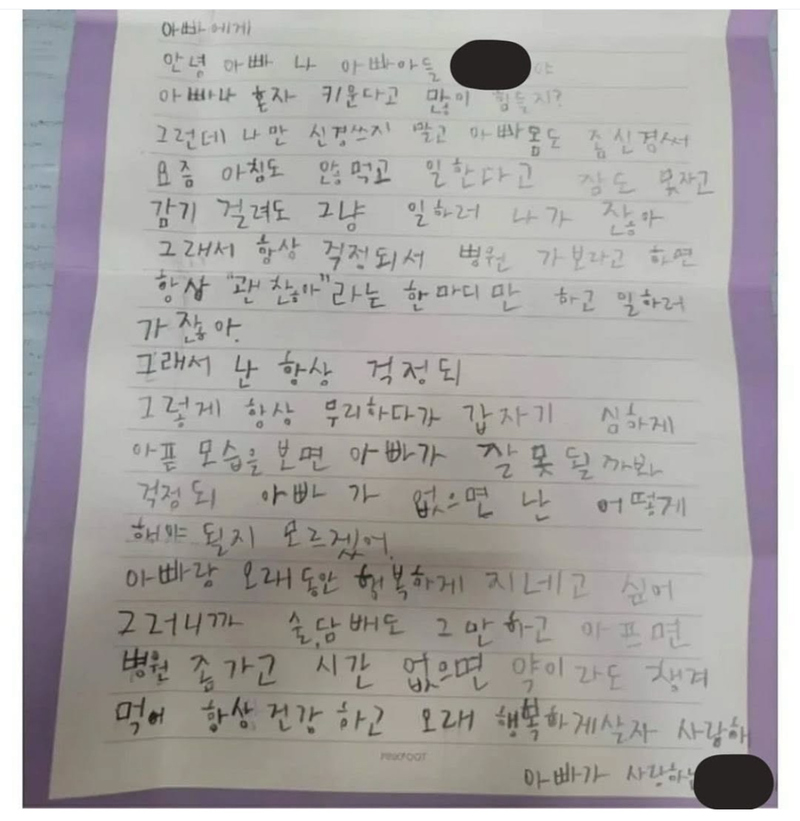 아빠에게
안녕 아빠 나 아빠아들 야
아빠나 혼자 키운다고 많이 힘들지?
그런데 나만 신경쓰지 말고 아빠몸도 좀신경써
요즘 아침도 않먹고 일한다고 잠도 못자고
감기 걸려도 그냥 일하러 나가 잖아
그래서 항상 걱정되서 병원 가보라고 하면
항상 "괜찮아"라는 한마디만 하고 일하러
가잖아.
그래서 난 항상 걱정되
그렇게 항상 무리하다가 갑자기 심하게
아픈 모습을 보면 아빠가 잘못될까봐
걱정되 아빠가 없으면 난 어떻게
해야 될지 모르겠어.
아빠랑 오래동안 행복하게 지네고 싶어
그러니까 술,담배도 그만하고 아프면
병원 좀가고 시간 없으면 약이라도 챙겨
먹어 항상 건강하고 오래 행복하게살자 사랑해
PINKFOOT
아빠가 사랑하는